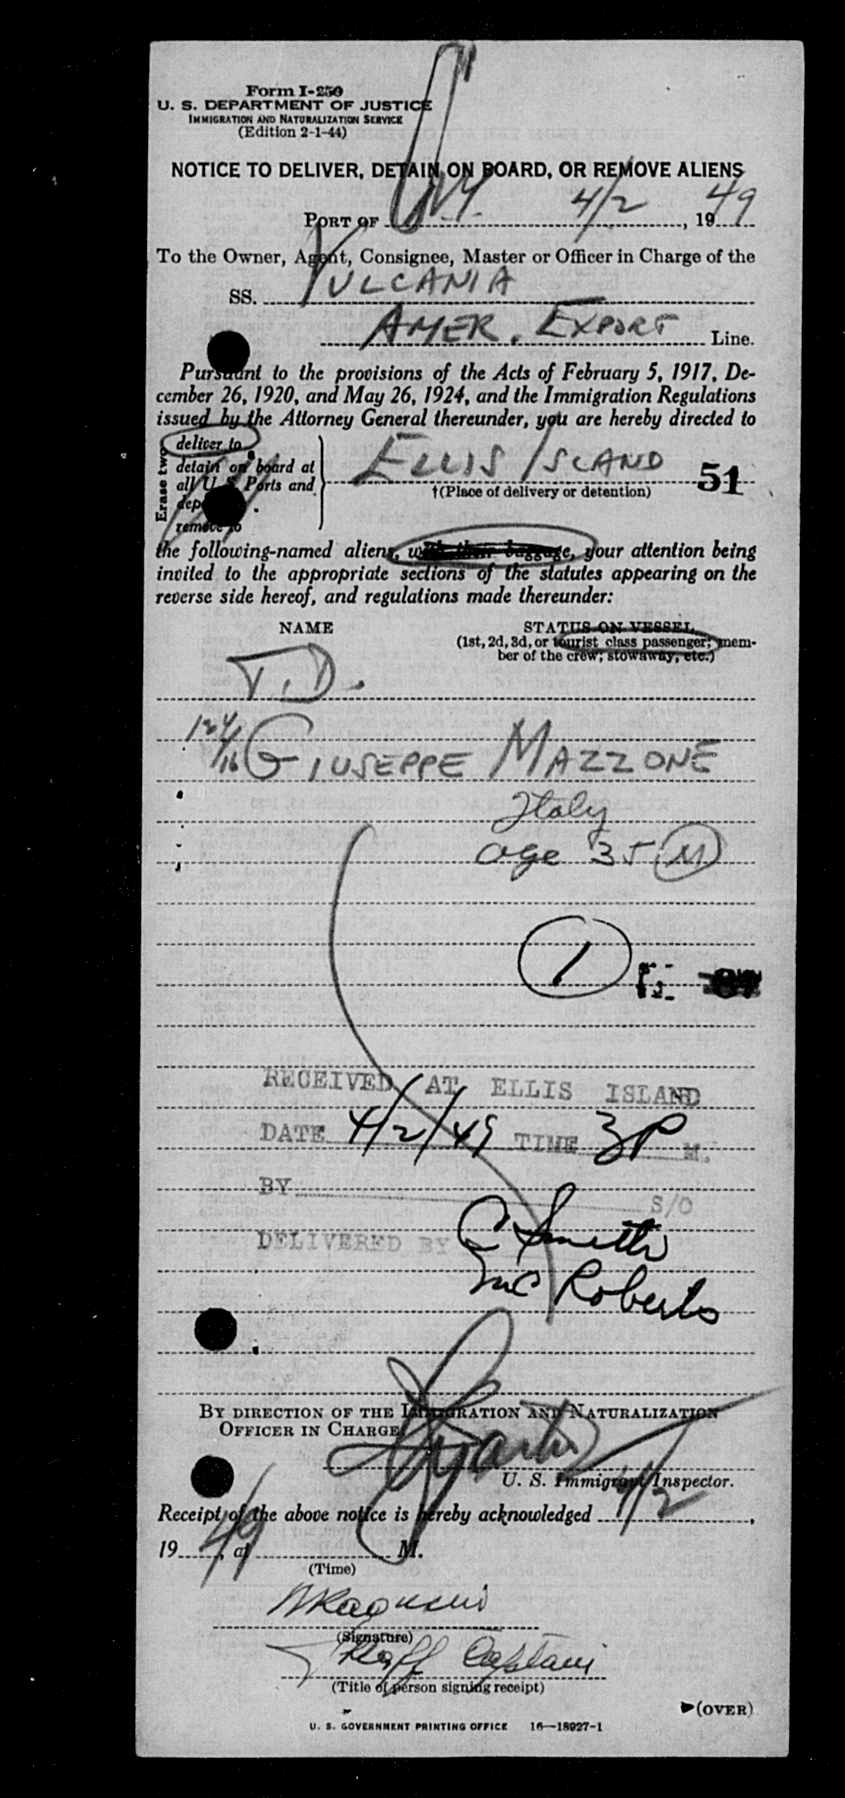 Form I-259
U. S. DEPARTMENT OF JUSTICE
IMMIGRATION AND NATURALIZATION SERVICE
(Edition 2-1-44)
NOTICE TO DELIVER, DETAIN ON BOARD, OR REMOVE ALIENS
PORT OF NY 4/2, 1949
To the Owner, Agent, Consignee, Master or Officer in Charge of the
SS. VULCANIA
AMER. EXPORT Line.
Pursuant to the provisions of the Acts of February 5, 1917, De-
cember 26, 1920, and May 26, 1924, and the Immigration Regulations
issued by the Attorney General thereunder, you are hereby directed to
Erase two
deliver to
detain on board at
all U. S. Ports and
remove to
ELLIS ISLAND 51
†(Place of delivery or detention)
the following-named aliens, with their baggage, your attention being
invited to the appropriate sections of the statutes appearing on the
reverse side hereof, and regulations made thereunder:
NAME STATUS ON VESSEL
(1st, 2d, 3d, or tourist class passenger; mem-
ber of the crew; stowaway, etc.)
T.D.
124/16 GIUSEPPE MAZZONE
Italy
age 35 M
1
RECEIVED AT ELLIS ISLAND
DATE 4/2/49 TIME 3P M.
BY S/O
DELIVERED BY C Smith
Mc Roberts
BY DIRECTION OF THE IMMIGRATION AND NATURALIZATION
OFFICER IN CHARGE
U. S. Immigrant Inspector.
Receipt of the above notice is hereby acknowledged 4/2,
1949, at M.
(Time)
(Signature)
Staff Captain
(Title of person signing receipt)
(OVER)
U. S. GOVERNMENT PRINTING OFFICE 16—18927-1